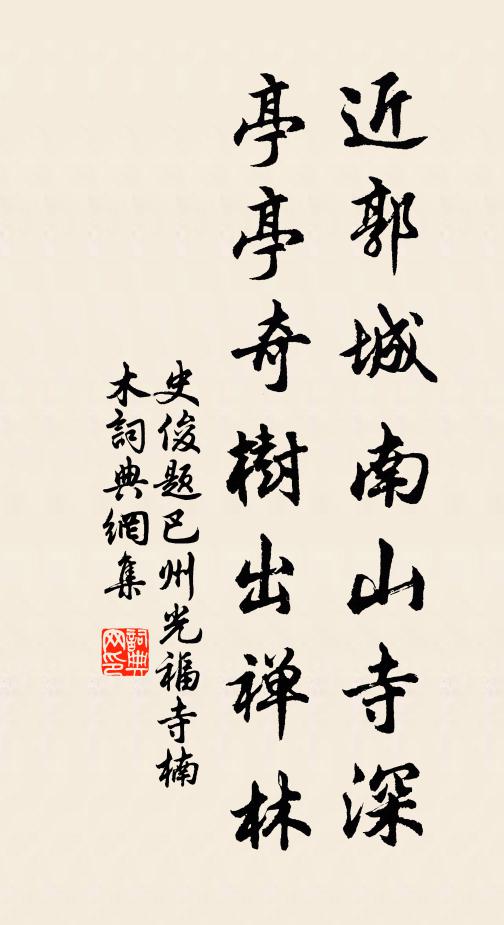 近郭城南山寺深
亭亭奇樹出禅林
史俊题巴州光福寺楠
木詞典網集
詞典网印